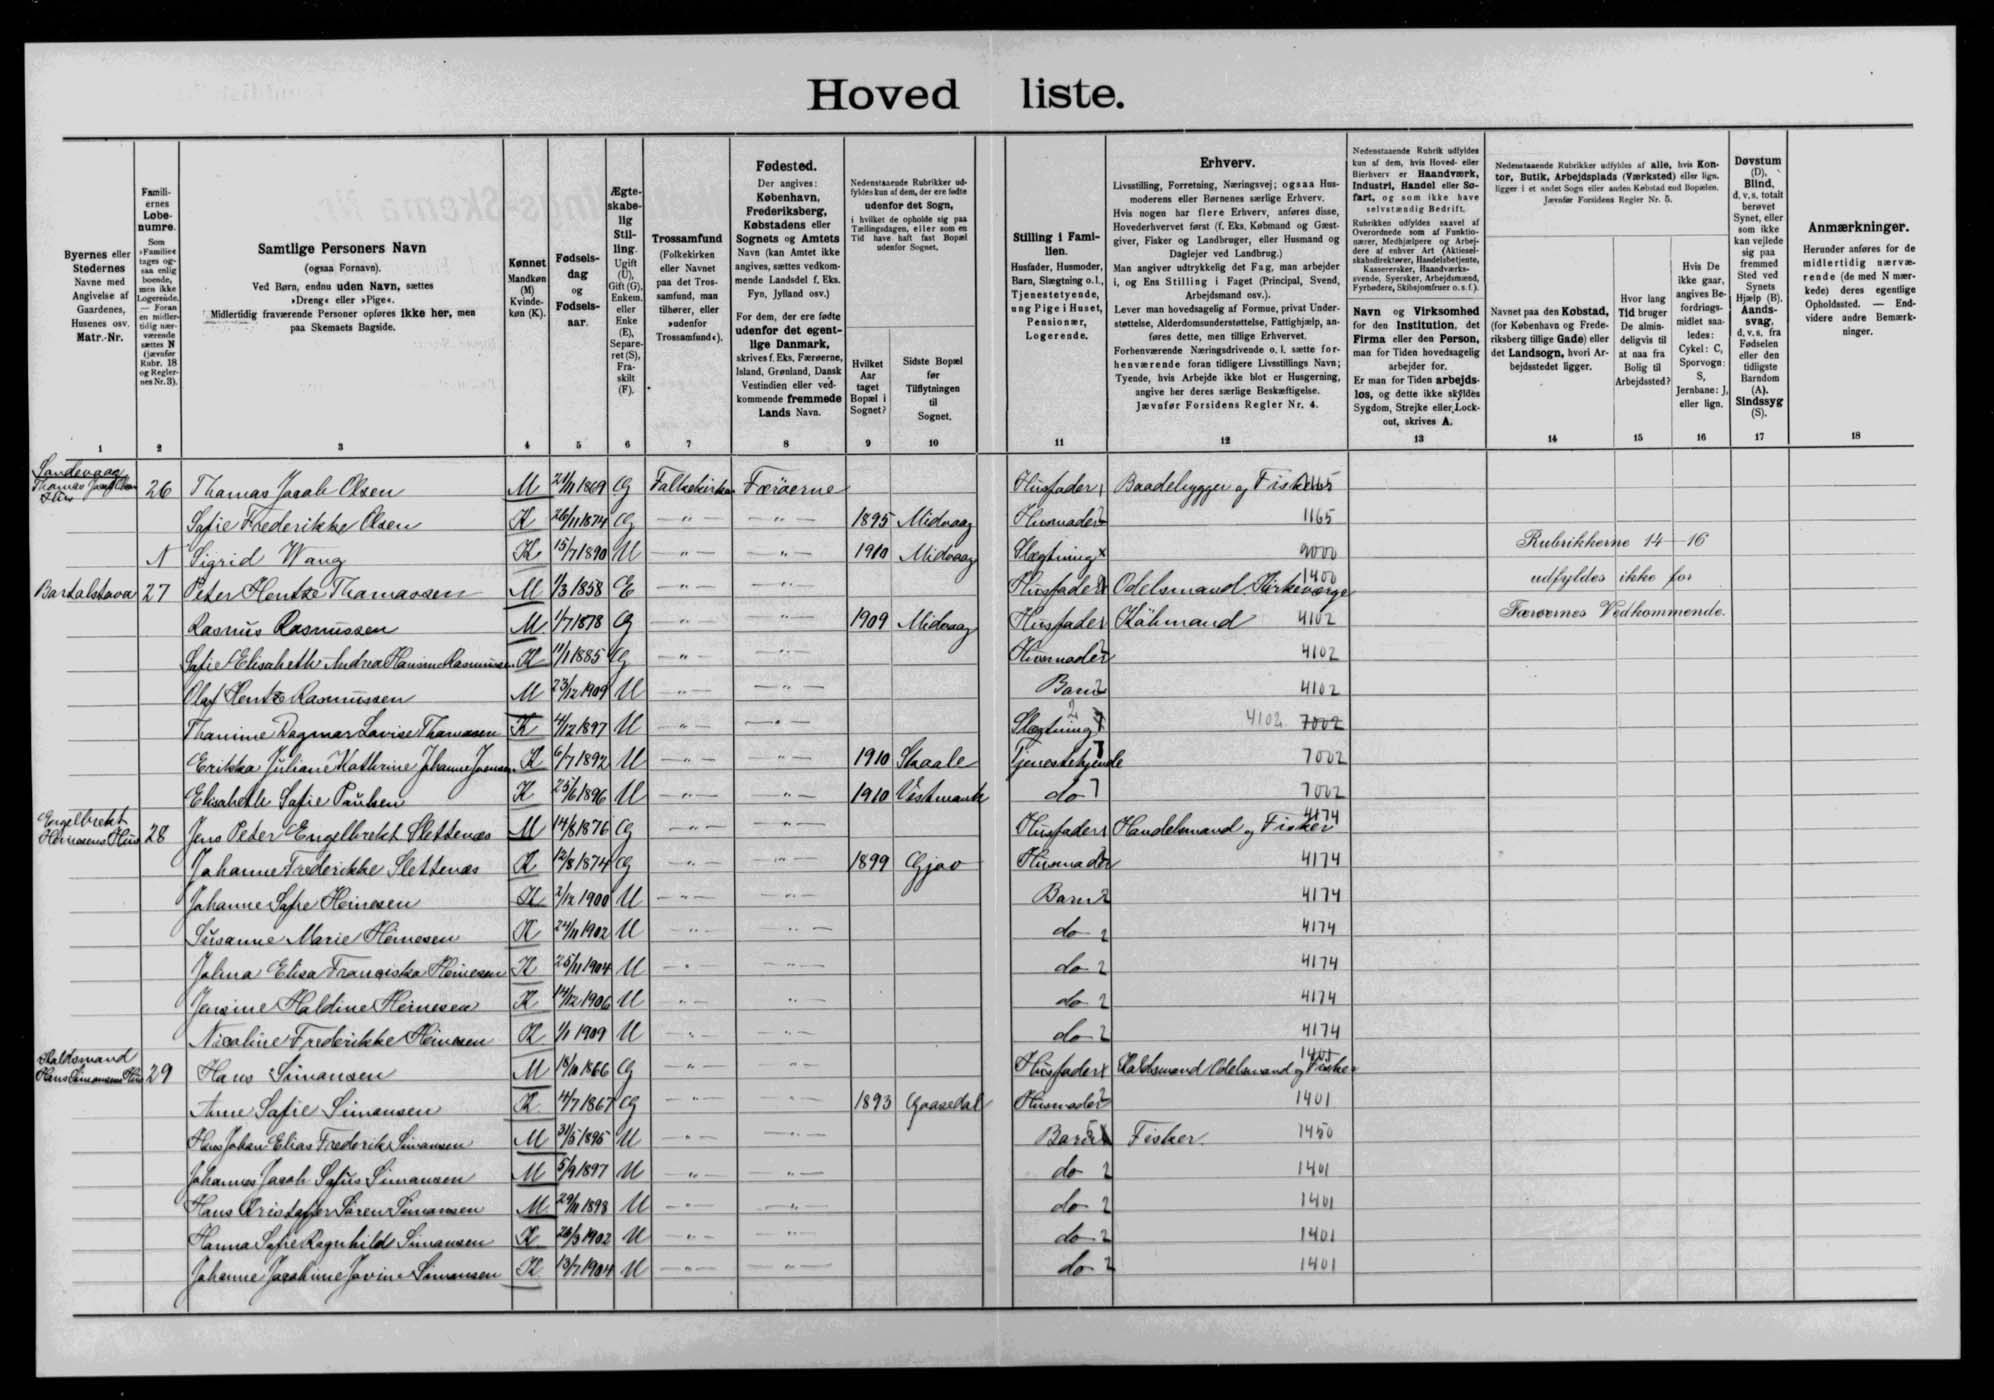 Hoved liste.
Byernes eller Stedernes Navne med Angivelse af Gaardenes, Husenes osv. Matr.-Nr.
Famili-ernes Løbe-numre. Som »Familie« tages og-saa enlig boende, men ikke Logerende. — Foran en midler-tidig nær-værende sættes N (jævnfør Rubr. 18 og Regler-nes Nr. 3).
Samtlige Personers Navn (ogsaa Fornavn). Ved Børn, endnu uden Navn, sættes »Dreng« eller »Pige«. Midlertidig fraværende Personer opføres ikke her, men paa Skemaets Bagside.
Kønnet Mandkøn (M) Kvinde-køn (K).
Fødsels-dag og Fødsels-aar.
Ægte-skabe-lig Stil-ling. Ugift (U), Gift (G), Enkem. eller Enke (E), Separe-ret (S), Fra-skilt (F).
Trossamfund (Folkekirken eller Navnet paa det Tros-samfund, man tilhører, eller »udenfor Trossamfund«).
Fødested. Der angives: København, Frederiksberg, Købstadens eller Sognets og Amtets Navn (kan Amtet ikke angives, sættes vedkom-mende Landsdel f. Eks. Fyn, Jylland osv.) For dem, der ere fødte udenfor det egent-lige Danmark, skrives f. Eks. Færøerne, Island, Grønland, Dansk Vestindien eller ved-kommende fremmede Lands Navn.
Nedenstaaende Rubrikker ud-fyldes kun af dem, der ere fødte udenfor det Sogn, i hvilket de opholde sig paa Tællingsdagen, eller som en Tid have haft fast Bopæl udenfor Sognet.
Hvilket Aar taget Bopæl i Sognet?
Sidste Bopæl før Tilflytningen til Sognet.
Stilling i Fami-lien. Husfader, Husmoder, Barn, Slægtning o. l., Tjenestetyende, ung Pige i Huset, Pensionær, Logerende.
Erhverv. Livsstilling, Forretning, Næringsvej; ogsaa Hus-moderens eller Børnenes særlige Erhverv. Hvis nogen har flere Erhverv, anføres disse, Hovederhvervet først (f. Eks. Købmand og Gæst-giver, Fisker og Landbruger, eller Husmand og Daglejer ved Landbrug.) Man angiver udtrykkelig det Fag, man arbejder i, og Ens Stilling i Faget (Principal, Svend, Arbejdsmand osv.). Lever man hovedsagelig af Formue, privat Under-støttelse, Alderdomsunderstøttelse, Fattighjælp, an-føres dette, men tillige Erhvervet. Forhenværende Næringsdrivende o. l. sætte for-henværende foran tidligere Livsstillings Navn; Tyende, hvis Arbejde ikke blot er Husgerning, angive her deres særlige Beskæftigelse. Jævnfør Forsidens Regler Nr. 4.
Nedenstaaende Rubrik udfyldes kun af dem, hvis Hoved- eller Bierhverv er Haandværk, Industri, Handel eller Sø-fart, og som ikke have selvstændig Bedrift. Rubrikken udfyldes saavel af Overordnede som af Funktio-nærer, Medhjælpere og Arbej-dere af enhver Art (Aktiesel-skabsdirektører, Handelsbetjente, Kasserersker, Haandværks-svende, Syersker, Arbejdsmænd, Fyrbødere, Skibsjomfruer o. s. f.). Navn og Virksomhed for den Institution, det Firma eller den Person, man for Tiden hovedsagelig arbejder for. Er man for Tiden arbejds-løs, og dette ikke skyldes Sygdom, Strejke eller Lock-out, skrives A.
Nedenstaaende Rubrikker udfyldes af alle, hvis Kon-tor, Butik, Arbejdsplads (Værksted) eller lign. ligger i et andet Sogn eller anden Købstad end Bopælen. Jævnfør Forsidens Regler Nr. 5.
Navnet paa den Købstad, (for København og Frede-riksberg tillige Gade) eller det Landsogn, hvori Ar-bejdsstedet ligger.
Hvor lang Tid bruger De almin-deligvis til at naa fra Bolig til Arbejdssted?
Hvis De ikke gaar, angives Be-fordrings-midlet saa-ledes: Cykel: C, Sporvogn: S, Jernbane: J, eller lign.
Døvstum (D). Blind, d. v. s. totalt berøvet Synet, eller som ikke kan vejlede sig paa fremmed Sted ved Synets Hjælp (B). Aands-svag, d. v. s. fra Fødselen eller den tidligste Barndom (A). Sindssyg (S).
Anmærkninger. Herunder anføres for de midlertidig nærvæ-rende (de med N mær-kede) deres egentlige Opholdssted. — End-videre andre Bemærk-ninger.
1 2 3 4 5 6 7 8 9 10 11 12 13 14 15 16 17 18
Sandevaag Thomas Jacob Olsen Hus 26 Thomas Jacob Olsen M 1869 G Folkekirken Færøerne Husfader Baadebygger og Fisker 1165
Sofie Frederikke Olsen K 26/11 1874 G — " — — " — 1895 Midvaag Husmoder 2 1165
N Sigrid Wang K 15/7 1890 U — " — — " — 1910 Midvaag Slægtning x 9000 Rubrikkerne 14 - 16
Bartalstova 27 Peter Hentze Thomassen M 1/3 1858 E — " — — " — Husfader Odelsmand. Kirkeværge 1400 udfyldes ikke for
Rasmus Rasmussen M 1/7 1878 G — " — — " — 1909 Midvaag Husfader Købmand 4102 Færøernes Vedkommende.
Sofie Elisabeth Andrea Hansine Rasmussen K 11/1 1885 G — " — — " — Husmoder 2 4102
Olaf Hentze Rasmussen M 23/12 1909 U — " — — " — Barn 2 4102
Thomine Dagmar Lovise Thomassen K 4/12 1897 U — " — — " — Slægtning 2 4102 7002
Erikka Juliane Kathrine Johanne Joensen K 6/7 1892 U — " — — " — 1910 Skaale Tjenestetyende 7 7002
Elisabeth Sofie Poulsen K 25/6 1896 U — " — — " — 1910 Vestmanh do 7 7002
Engelbrekt Heinesens Hus 28 Jens Peter Engelbrekt Slettenæs M 14/8 1876 G — " — — " — Husfader 1 Handelsmand og Fisker 4174
Johanne Frederikke Slettenæs K 12/8 1874 G — " — — " — 1899 Gjov Husmoder 4174
Johanne Sofie Heinesen K 2/12 1900 U — " — — " — Barn 2 4174
Susanne Marie Heinesen K 24/11 1902 U — " — — " — do 2 4174
Jalma Elisa Franciska Heinesen K 25/11 1904 U — " — — " — do 2 4174
Jensine Haldine Heinesen K 14/12 1906 U — " — — " — do 2 4174
Nicoline Frederikke Heinesen K 1/1 1909 U — " — — " — do 2 4174
Haldsmand Hans Simonsens Hus 29 Hans Simonsen M 1866 G — " — — " — Husfader Haldsmand Odelsmand og Fisker 1401
Anne Sofie Simonsen K 4/7 1867 G — " — — " — 1893 Gaasedal Husmoder 2 1401
Hans Johan Elias Frederik Simonsen M 31/5 1895 U — " — — " — Barn Fisker. 1450
Johannes Jacob Sofus Simonsen M 5/9 1897 U — " — — " — do 2 1401
Hans Kristoffer Søren Simonsen M 29/11 1898 U — " — — " — do 2 1401
Hanna Sofie Ragnhild Simonsen K 20/3 1902 U — " — — " — do 2 1401
Johanne Jacobine Jovine Simonsen K 13/7 1904 U — " — — " — do 2 1401